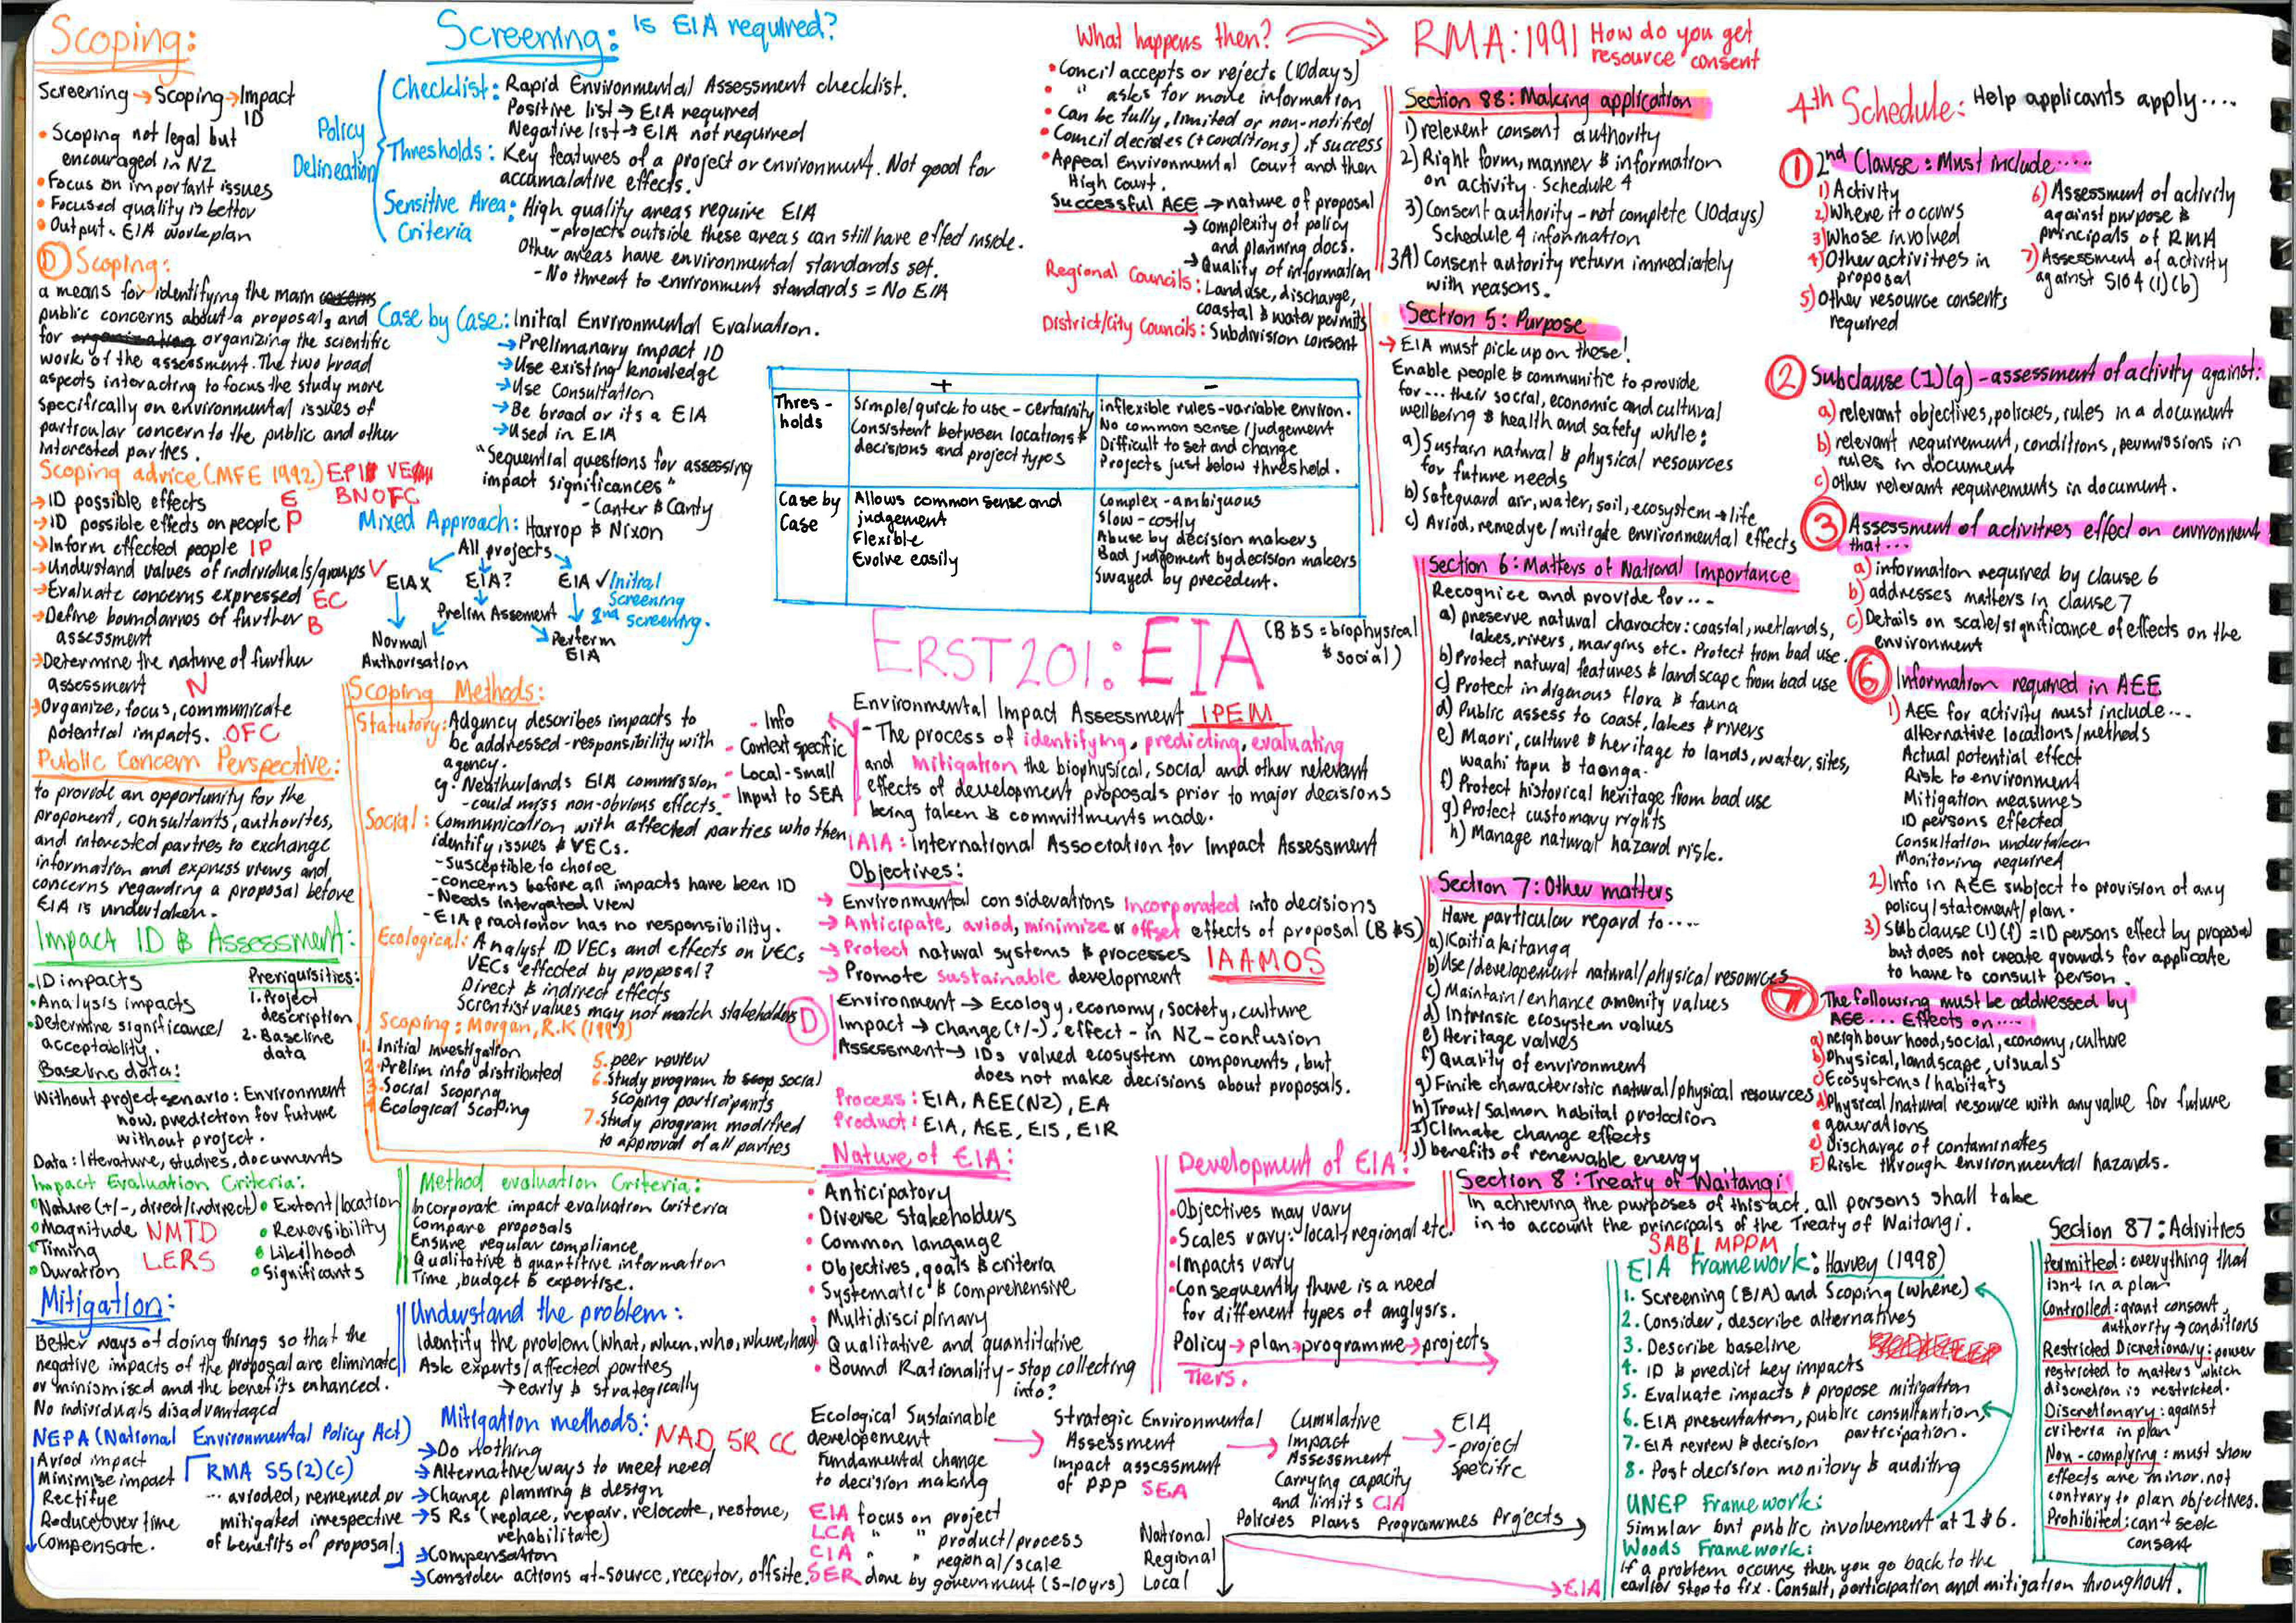 Scoping:
Screening → Scoping → Impact
ID
• Scoping not legal but
encouraged in NZ
• Focus on important issues
• Focused quality is better
• Output. EIA workplan
D Scoping:
a means for identifying the main
public concerns about a proposal, and
for organizing the scientific
work of the assessment. The two broad
aspects interacting to focus the study more
specifically on environmental issues of
particular concern to the public and other
interested parties.
Scoping advice (MFE 1992)
BNOFC
→ ID possible effects E
→ ID possible effects on people P
→ Inform effected people IP
→ Understand values of individuals/groups V
→ Evaluate concerns expressed EC
→ Define boundaries of further B
assessment
→ Determine the nature of further
assessment N
→ Organize, focus, communicate
potential impacts. OFC
Public Concern Perspective:
to provide an opportunity for the
proponent, consultants, authorites,
and interested parties to exchange
information and express views and
concerns regarding a proposal before
EIA is undertaken.
Impact ID & Assessment:
• ID impacts
• Analysis impacts
• Determine significance/
acceptablity.
Preriquisities:
1. Project
description
2. Baseline
data
Baseline data:
Without project senario: Environment
now, prediction for future
without project.
Data: literature, studies, documents
Impact Evaluation Criteria:
• Nature (+/-, direct/indirect)
• Magnitude
• Timing
• Duration
NMTD
LERS
• Extent/location
• Reversibility
• Liklihood
• Significants
Mitigation:
Better ways of doing things so that the
negative impacts of the proposal are eliminate
or minismised and the benefits enhanced.
No individuals disadvantaged
NEPA (National Environmental Policy Act)
Aviod impact
Minimise impact
Rectifye
Reduce over time
Compensate.
RMA S5(2)(c)
... avioded, rememed or
mitigated irrespective
of benefits of proposal.
Screening: Is EIA required?
Policy
Delineation
Checklist: Rapid Environmental Assessment checklist.
Positive list → EIA required
Negative list → EIA not required
Thresholds: Key features of a project or environment. Not good for
accumalative effects.
Sensitive Area
Criteria
: High quality areas require EIA
- projects outside these areas can still have effect inside.
Other areas have environmental standards set.
- No threat to environment standards = No EIA
Case by Case: Initial Environmental Evaluation.
→ Prelimanary impact ID
→ Use existing knowledge
→ Use Consultation
→ Be broad or its a EIA
→ Used in EIA
"Sequential questions for assessing
impact significances"
- Canter & Canty
Mixed Approach: Harrop & Nixon
All projects
EIA X
EIA?
EIA ✓ Initial
Screening
Prelim Assement
2nd screening.
Normal
Authorisation
Perform
EIA
+
-
Thres-
holds
Simple/quick to use - certainity
Consistent between locations &
decisions and project types
inflexible rules - variable environ.
No common sense/judgement
Difficult to set and change
Projects just below threshold.
Case by
Case
Allows common sense and
judgement
Flexible
Evolve easily
Complex - ambiguous
Slow - costly
Abuse by decision makers
Bad judgement by decision makers
Swayed by precedent.
Scoping Methods:
Statutory: Adgency describes impacts to
be addressed - responsibility with
agency.
eg: Neatherlands EIA commission
- could miss non-obvious effects.
- Info
- Context specific
- Local-small
- Input to SEA
Social: Communication with affected parties who then
identify issues & VECs.
- Susceptible to choice
- concerns before all impacts have been ID
- Needs intergated view
- EIA practionor has no responsibility.
Ecological: Analyst ID VECs and effects on VECs
VECs effected by proposal?
Direct & indirect effects
Scientist values may not match stakeholders
Scoping: Morgan, R.K (1998)
1. Initial investigation
2. Prelim info distributed
3. Social scoping
4. Ecological Scoping
5. peer review
6. Study program to social
scoping participants
7. Study program modified
to approval of all parties
Method evaluation Criteria:
Incorporate impact evaluation criteria
Compare proposals
Ensure regular compliance
Qualitative & quantitive information
Time, budget & expertise.
Understand the problem:
Identify the problem (what, when, who, where, how)
Ask experts/affected partires
→ early & strategically
Mitigation methods: NAD, 5R CC
→ Do nothing
→ Alternative ways to meet need
→ Change planning & design
→ 5 Rs (replace, repair, relocate, restore,
rehabilitate)
→ Compensation
→ Consider actions at-source, receptor, offsite.
ERST201: EIA (B & S = biophysical
& social)
Environmental Impact Assessment IPEM
- The process of identifying, predicting, evaluating
and mitigation the biophysical, social and other relevent
effects of development proposals prior to major decisions
being taken & committments made.
IAIA: International Association for Impact Assessment
Objectives:
→ Environmental considerations incorporated into decisions
→ Anticipate, aviod, minimize or offset effects of proposal (B & S)
→ Protect natural systems & processes IAAMOS
→ Promote sustainable development
D
Environment → Ecology, economy, society, culture
Impact → change (+/-), effect - in NZ - confusion
Assessment → IDs valued ecosystem components, but
does not make decisions about proposals.
Process: EIA, AEE (NZ), EA
Product: EIA, AEE, EIS, EIR
Nature of EIA:
• Anticipatory
• Diverse stakeholders
• Common langauge
• Objectives, goals & criteria
• Systematic & comprehensive
• Multidisciplinary
• Qualitative and quantitative
• Bound Rationality - stop collecting
info?
Development of EIA:
• Objectives may vary
• Scales vary: local, regional etc.
• Impacts vary
• Consequently there is a need
for different types of anglysis.
Policy → plan → programme → projects
Tiers.
Ecological Sustainable
developement
Fundamental change
to decision making
→ Strategic Environmental
Assessment
Impact assessment
of PPP SEA
→ Cumulative
Impact
Assessment
Carrying capacity
and limits CIA
→ EIA
- project
Specific
EIA focus on project
LCA " " product/process
CIA " " regional/scale
SER done by government (5-10yrs)
Policies Plans Programmes Projects
National
Regional
Local
EIA
What happens then? → RMA: 1991 How do you get
resource consent
• Concil accepts or rejects (10days)
• " asks for more information
• Can be fully, limited or non-notified
• Council decides (+ conditions) if success
• Appeal Environmental Court and then
High Court.
Successful AEE → nature of proposal
→ complexity of policy
and planning docs.
→ Quality of information
Regional Councils: Landuse, discharge,
coastal & water permits
District/City Councils: Subdivision consent
Section 88: Making application
1) relevent consent authority
2) Right form, manner & information
on activity. Schedule 4
3) Consent authority - not complete (10days)
Schedule 4 information
3A) Consent autority return immediately
with reasons.
Section 5: Purpose
→ EIA must pick up on these!
Enable people & communitie to provide
for... their social, economic and cultural
wellbeing & health and safety while:
a) Sustain natural & physical resources
for future needs
b) Safeguard air, water, soil, ecosystem → life
c) Aviod, remedye/mitigate environmental effects
Section 6: Matters of National Importance
Recognize and provide for...
a) preserve natural character: coastal, wetlands,
lakes, rivers, margins etc. Protect from bad use.
b) Protect natural features & landscape from bad use
c) Protect indigenous flora & fauna
d) Public assess to coast, lakes & rivers
e) Maori, culture & heritage to lands, water, sites,
waahi tapu & taonga.
f) Protect historical heritage from bad use
g) Protect customary rights
h) Manage natural hazard risk.
Section 7: Other matters
Have particular regard to....
a) Kaitiakitanga
b) Use/developement natural/physical resources
c) Maintain/enhance amenity values
d) Intrinsic ecosystem values
e) Heritage values
f) Quality of environment
g) Finite characteristic natural/physical resources
h) Trout/Salmon habital protection
I) Climate change effects
J) benefits of renewable energy
Section 8: Treaty of Waitangi
In achieving the purposes of this act, all persons shall take
in to account the principals of the Treaty of Waitangi.
SABI MPPM
EIA Framework: Harvey (1998)
1. Screening (EIA) and Scoping (where)
2. Consider, describe alternatives
3. Describe baseline
4. ID & predict key impacts
5. Evaluate impacts & propose mitigation
6. EIA presentation, public consultantion,
participation.
7. EIA review & decision
8. Post decision monitory & auditing
UNEP Framework:
Simular but public involvement at 1 & 6.
Woods Framework:
If a problem occurs then you go back to the
earlier step to fix. Consult, participation and mitigation throughout.
4th Schedule: Help applicants apply....
1 2nd Clause: Must include.....
1) Activity
2) Where it occurs
3) Whose involved
4) Other activitires in
proposal
5) Other resource consents
required
6) Assessment of activity
against purpose &
principals of RMA
7) Assessment of activity
against S104 (1)(b)
2 Subclause (1)(g) - assessment of activity against:
a) relevant objectives, policies, rules in a document
b) relevant requirement, conditions, permissions in
rules in document
c) Other relevant requirements in document.
3 Assessment of activitres effect on environment
that...
a) information required by clause 6
b) addresses matters in clause 7
c) Details on scale/significance of effects on the
environment
6 Information required in AEE
1) AEE for activity must include...
alternative locations/methods
Actual potential effect
Risk to environment
Mitigation measures
ID persons effected
Consultation undertaken
Monitoring required
2) Info in AEE subject to provision of any
policy/statement/plan.
3) Subclause (1)(f) = ID persons effect by proposal
but does not create grounds for applicate
to have to consult person.
7 The following must be addressed by
AEE... Effects on....
a) neighbourhood, social, economy, culture
b) Physical, landscape, visuals
c) Ecosystems/habitats
d) Physical/natural resource with any value for future
generations
e) Discharge of contaminates
F) Risk through environmental hazards.
Section 87: Activities
Permitted: everything that
isn't in a plan
Controlled: grant consent,
authority → conditions
Restricted Discretionary: power
restricted to matters which
discretion is restricted.
Discretionary: against
criteria in plan
Non-complying: must show
effects are minor, not
contrary to plan objectives.
Prohibited: can't seek
consent